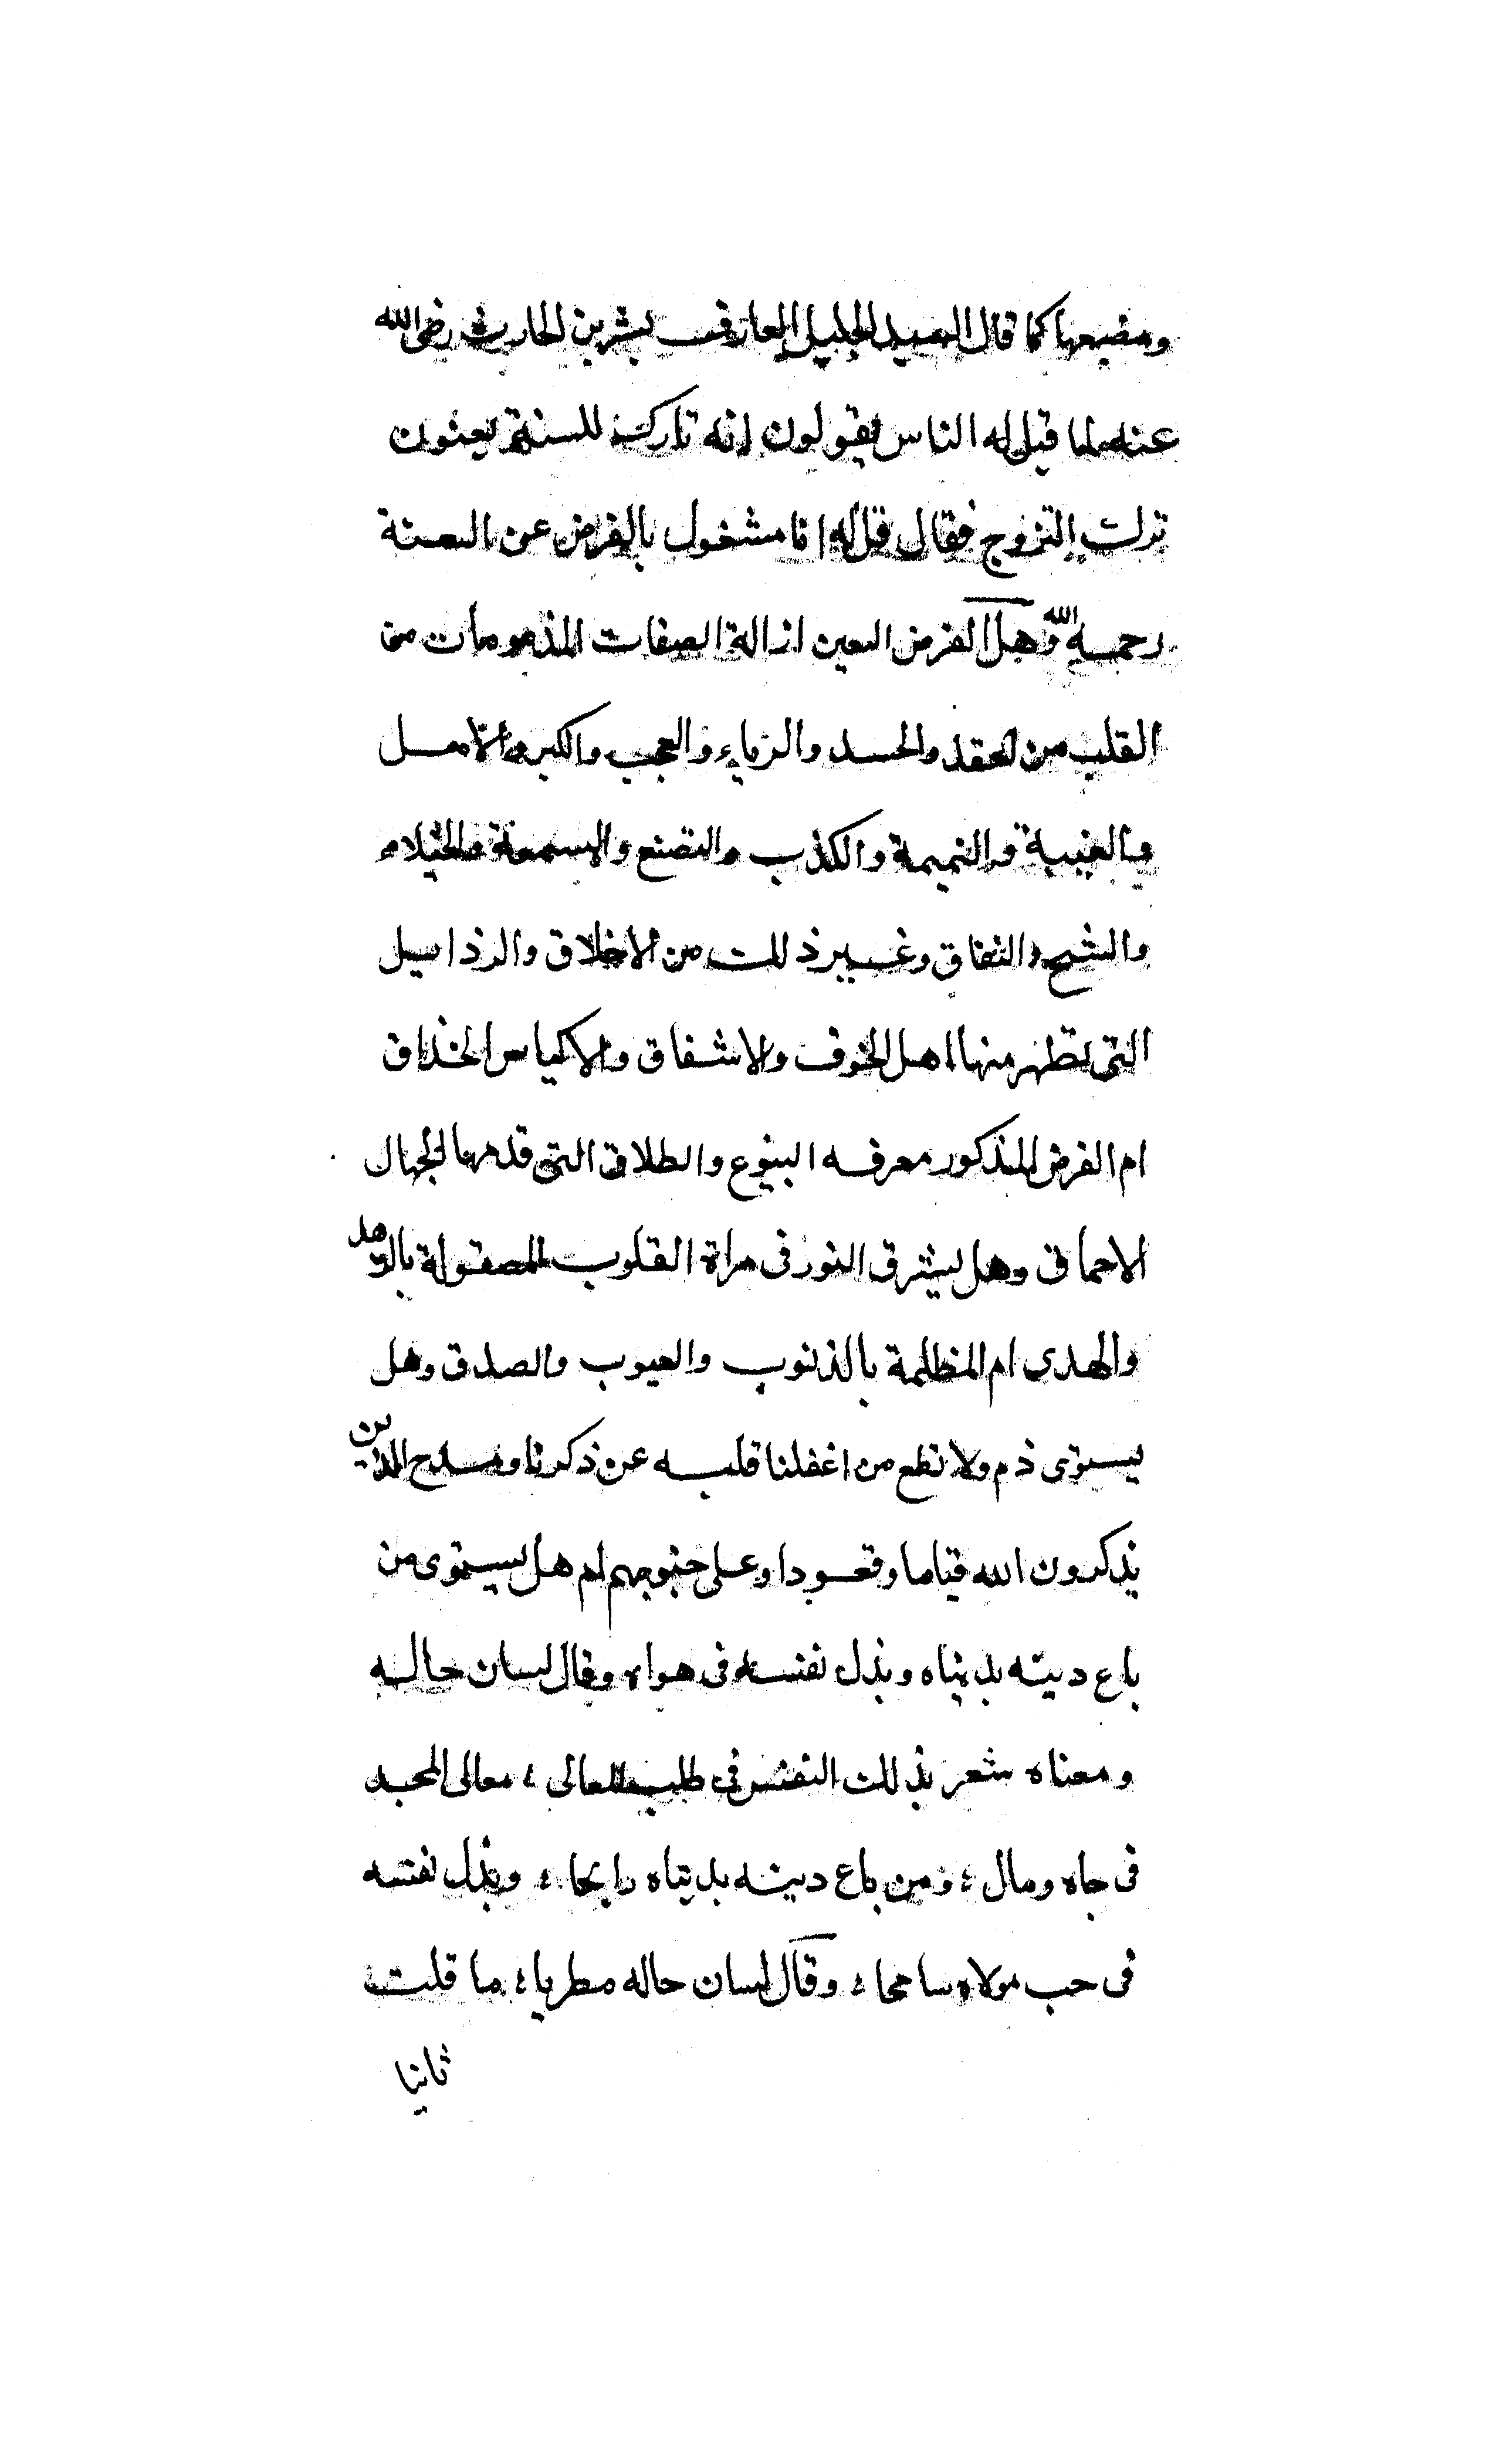 ومضيعها كما قال السيد الجليل العارف بشر بن الحارث رضى الله
عنه لما قيل له الناس يقولون انه تارك للسنة يعنون
ترك التزوج فقال قل له انا مشغول بالفرض عن السنة
رحمه الله وهل الفرض العين ازالة الصفات المذمومات من
القلب من الحقد والحسد والرياء والعجب والكبر والامل
والغيبة والنميمة والكذب والتصنع والسمعة والخيلاء
والشح والنفاق وغير ذلك من الاخلاق والرذايل
التى تطهر منها اهل الخوف والاشفاق والاكياس الحذاق
ام الفرض المذكور معرفه البيوع والطلاق التى قدمها الجهال
الاحماق وهل يشرق النور فى مراة القلوب المصقولة بالزهد
والهدى ام المظلمة بالذنوب والعيوب والصدق وهل
يستوى ذم ولا تطع من اغفلنا قلبه عن ذكرنا ومدح الذين
يذكرون الله قياما وقعودا وعلى جنوبهم ام هل يستوى من
باع دينه بدنياه وبذل نفسه فى هواه وقال لسان حاله
ومعناه شعر بذلت النفس فى طلب المعالى ؛ معالى المجد
فى جاه ومال ؛ ومن باع دينه بدنياه رابحا ؛ وبذل نفسه
فى حب مولاه سامحا ؛ وقال لسان حاله مطربا ؛ ما قلت
ثانيا